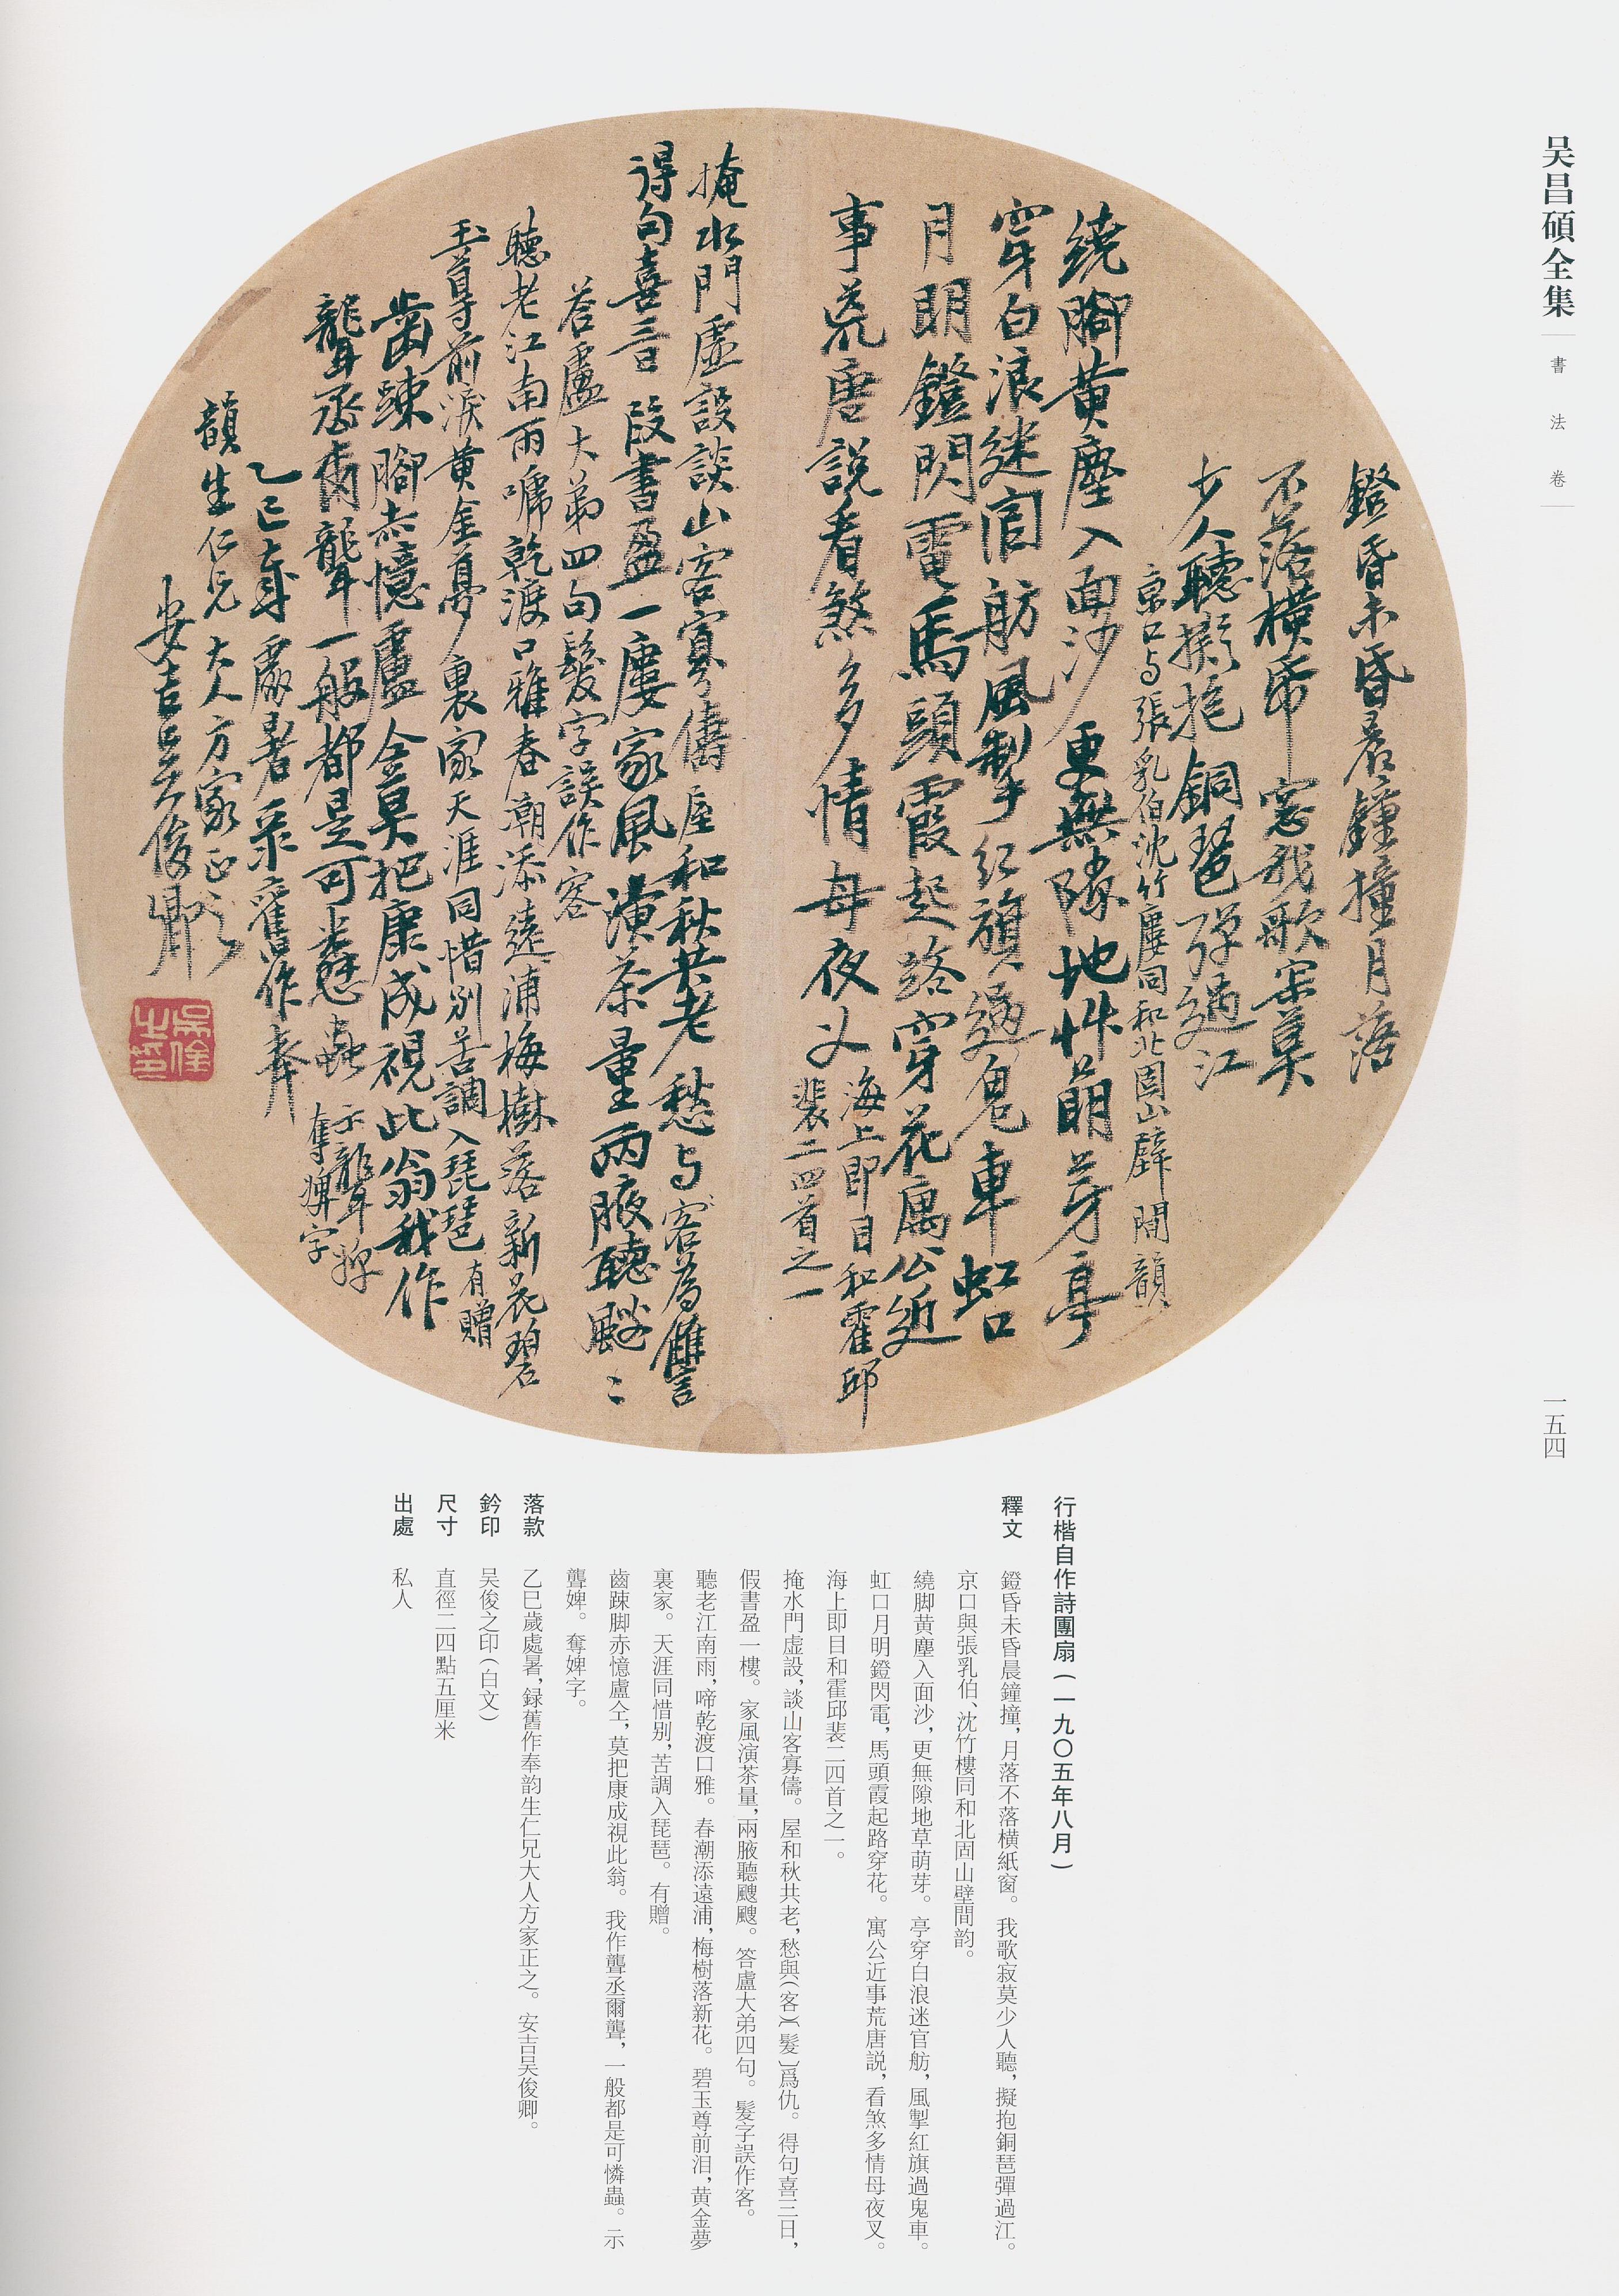 吴昌碩全集
書法卷
一五四
鐙昏未昏晨鐘撞月落
不落横帋窓我歌宋莫
少人聽擬抱銅琶彈過江
京口与張乳伯沈竹廔同和北固山壁間韻
繞腳黄塵入面沙更無隙地艸萌芽亭
穿白浪迷官舫風掣红旗過鬼車虹口
月明鐙閃電馬頭霞起路穿花寓公近
事荒唐説看煞多情母夜义
海上即目和霍邱
裴二四首之一
掩水門虚設談山客寡儔屋和秋共老愁与客為讎
得句喜三日段書盈一廔家風演茶量兩腋聽颼〻
荅盧大弟四句髮字誤作客
聽老江南雨嗁乾渡口雅春潮添遠浦梅樹落新花碧
玉尊前淚黄金夢裏家天涯同惜别苦調入琵琶有贈
齒疎腳赤憶盧仝莫把康成視此翁我作
聾丞爾聾一般都是可憐蟲
示聾婢
奪婢字
乙巳歲處暑录舊作奉
韻生仁兄大人方家正之
安吉吴俊卿
吴俊之印
行楷自作詩團扇(一九〇五年八月)
釋文 鐙昏未昏晨鐘撞,月落不落横紙窗。我歌寂莫少人聽,擬抱銅琶彈過江。
京口與張乳伯、沈竹樓同和北固山壁間韵。
繞脚黄塵入面沙,更無隙地草萌芽。亭穿白浪迷官舫,風掣紅旗過鬼車。
虹口月明鐙閃電,馬頭霞起路穿花。寓公近事荒唐説,看煞多情母夜叉。
海上即目和霍邱裴二四首之一。
掩水門虚設,談山客寡儔。屋和秋共老,愁與(客)〔髮〕爲仇。得句喜三日,
假書盈一樓。家風演茶量,兩腋聽颼颼。答盧大弟四句。髮字誤作客。
聽老江南雨,啼乾渡口雅。春潮添遠浦,梅樹落新花。碧玉尊前泪,黄金夢
裏家。天涯同惜别,苦調入琵琶。有贈。
齒踈脚赤憶盧仝,莫把康成視此翁。我作聾丞爾聾,一般都是可憐蟲。示
聾婢。奪婢字。
落款 乙巳歲處暑,録舊作奉韵生仁兄大人方家正之。安吉吴俊卿。
鈐印 吴俊之印(白文)
尺寸 直徑二四點五厘米
出處 私人